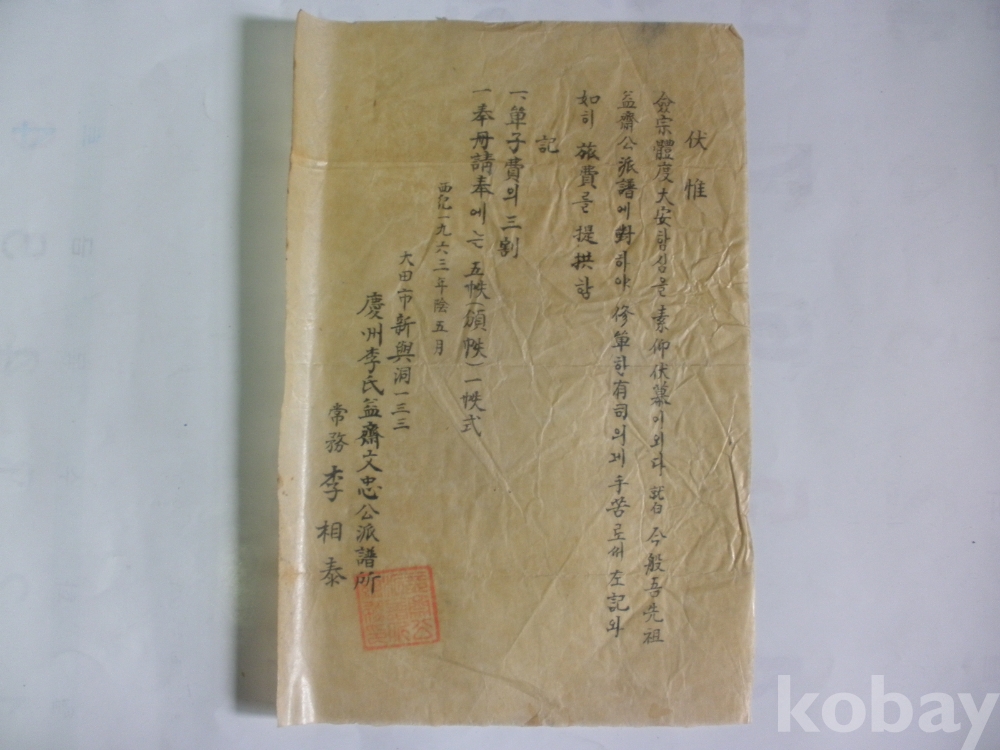 伏惟
僉宗體度大安하심을 素仰伏慕이외다 就白 今般吾先祖
益齋公派譜에對하야 修單한有司의게 手苦로써 左記와
如히 旅費를 提拱함
記
一、單子費의 三割
一 奉册請奉에는 五帙(頒帙) 一帙式
西紀一九六三年陰五月
大田市新興洞一三三
慶州李氏益齋文忠公派譜所
常務 李相泰
kobay